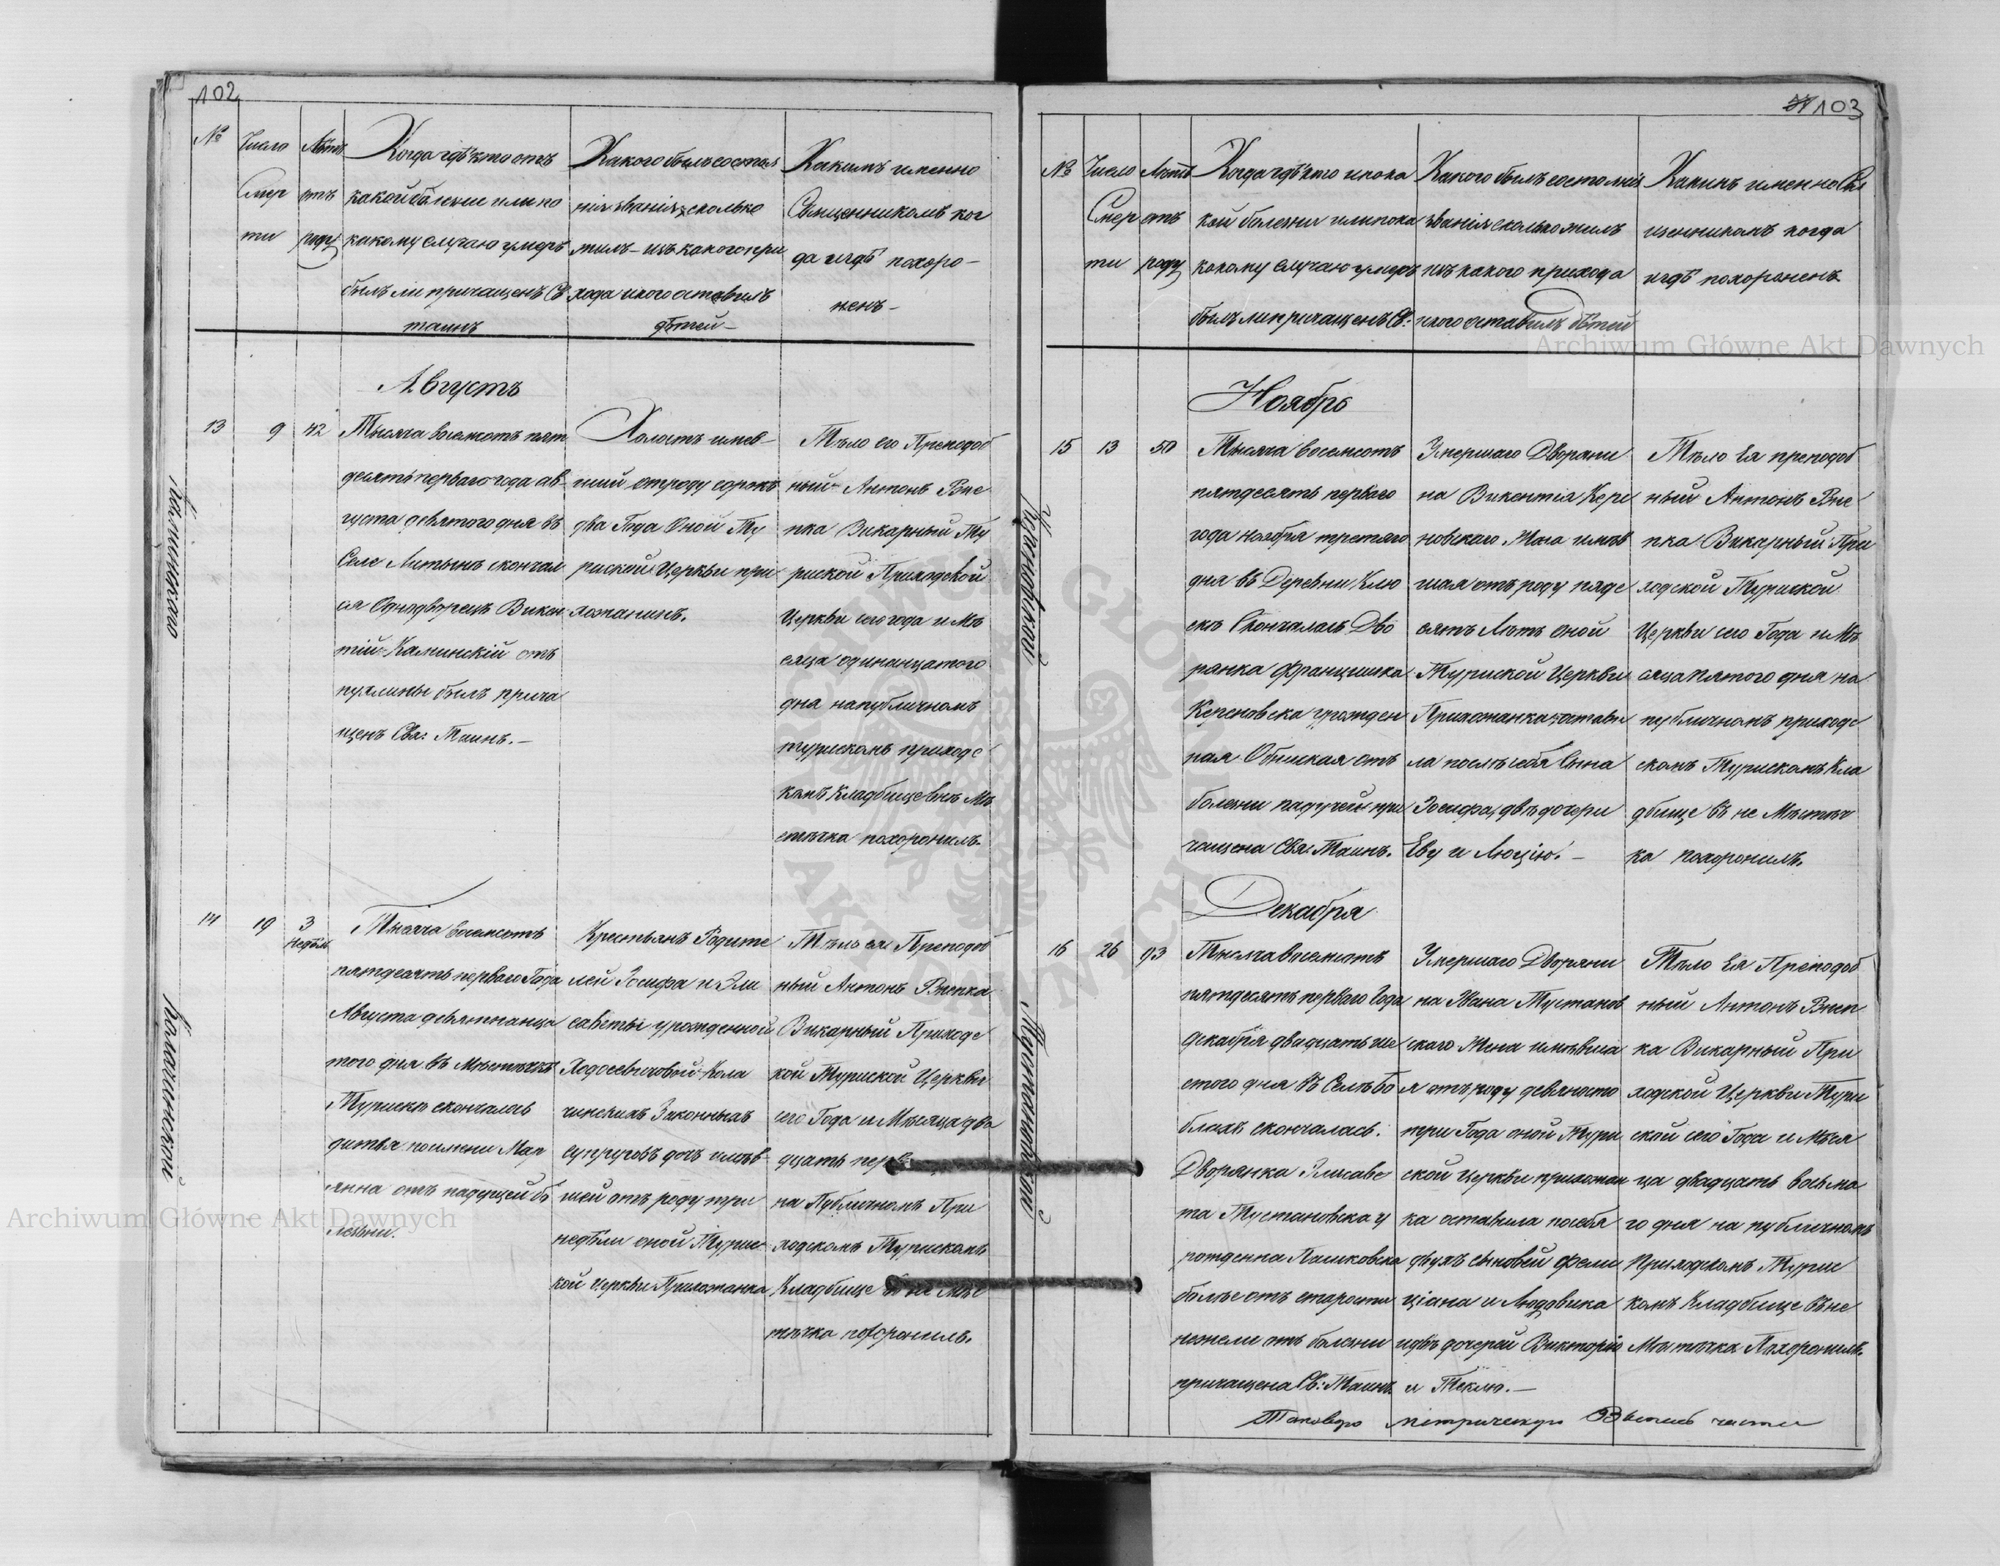 102
№
Число Смер ти
Лѣтъ отъ роду
Когда гдѣ кто отъ
какой болезни или по
какому случаю умеръ
былъ ли причащенъ Св
таинъ
Какого былъ состоя
нія званія, сколько
жилъ – изъ какого при
хода и кого оставилъ
дѣтей –
Какимъ именно
Священникомъ ког
да и гдѣ похоро-
ненъ –
Августъ
Каминскаго
13
9
42
Тысяча восемсотъ пят
десятъ перваго года ав-
густа девятого дня въ
Селе Литынъ скончал
ся Однодворецъ Викен
тій Каминскій отъ
пухлины былъ прича
щенъ Свя: Таинъ. –
Холостъ имев-
шій отроду сорокъ
два Года оной Ту
риской Церкви при
хожанинъ.
Тѣло его Преподоб
ный Антонъ Рне
пка Викарный Ту
риской Приходской
Церкви сего года и Мѣ
сяца одинанцатого
дня на публичномъ
турискомъ приходс
комъ Кладбище внѣ Мѣ
стѣчка похоронилъ.
Колачинской
14
19
3 Недѣли
Тысяча восемсотъ
пятдесятъ перваго Года
Августа девятнанца
того дня въ Местечкѣ
Турискѣ скончалась
дитья по имени Мар
янна отъ падущей бо
лезни.
Крестьянъ Родите
лей Іосифа и Эли
саветы урожденной
Ходосевичовой Кола
чинскихъ Законныхъ
супруговъ дочь имѣв
шей отъ роду три
недѣли оной Турис-
кой церкви Прихожанка
Тѣло ея Преподоб
ный Антонъ Рнепка
Викарный Приходс
кой Туриской Церкви
сего Года и Мѣсяца два
дцать перв
на Публичномъ При
ходскомъ Турискомъ
Кладбище внѣ Мѣс
тѣчка похоронилъ.
103
№
Число Смер ти
Лѣтъ отъ роду
Когда гдѣ кто и кока
кой болезни или по ка
какому случаю умеръ
былъ ли причащенъ Св:
Какого былъ состоянія
званія сколько жилъ
изъ какого прихода
и кого оставилъ дѣтей
Какимъ именно Свя
щенникомъ когда
и гдѣ похороненъ
Ноябрь
Керсновской
15
13
50
Тысяча восемсотъ
пятдесятъ перваго
года ноября третяго
дня въ Деревни Клю
скъ Скончалась Дво
рянка Францишка
Керсновска урожден
ная Обниская отъ
болезни падучей при
чащена Свя: Таинъ.
Умершаго Дворяни
на Викентія Керс
новскаго Жена имѣв
шая отъ роду пядес
сятъ Лѣтъ оной
Туриской Церкви
Прихожанка остави
ла послѣ себя Сына
Іосифа, двѣ дочери
Еву и Люцію. –
Тѣло Ея преподоб
ный Антонъ Рне
пка Викарный При
ходской Туриской
Церкви сего Года и Мѣ
сяца пятого дня на
публичномъ приходс
комъ Турискомъ Кла
дбище внѣ Мѣстеч
ка похоронилъ.
Декабря
Тустановской
16
26
93
Тысяча восемсотъ
пятдесятъ перваго Года
декабря двадцать ше
стого дня въ Селѣ Бо
блахъ скончалась:
Дворянка Элисаве
та Тустановска у
рожденна Пашковска
болѣе отъ старости
нежели отъ болезни
причащена Св: Таинъ
Умершаго Дворяни
на Ивана Тустанов
скаго Жена имѣвша
я отъ роду девяносто
три Года оной Тури
ской церкви прихожан
ка оставила по себя
двухъ сыновей Фели
ціана и Людовика
и двѣ дочерей Викторію
и Теклю. –
Тѣло Ея Преподоб
ный Антонъ Рнеп
ка Викарный При
ходской Церкви Тури
ской сего Года и Мѣся
ца двадцать восьма
го дня на публичномъ
Приходскомъ Турис
комъ Кладбище внѣ
Мѣстечка Похоронилъ.
Таковую метрическую Выпись части
Archiwum Główne Akt Dawnych
Archiwum Główne Akt Dawnych
ARCHIWUM GŁÓWNE AKT DAWNYCH